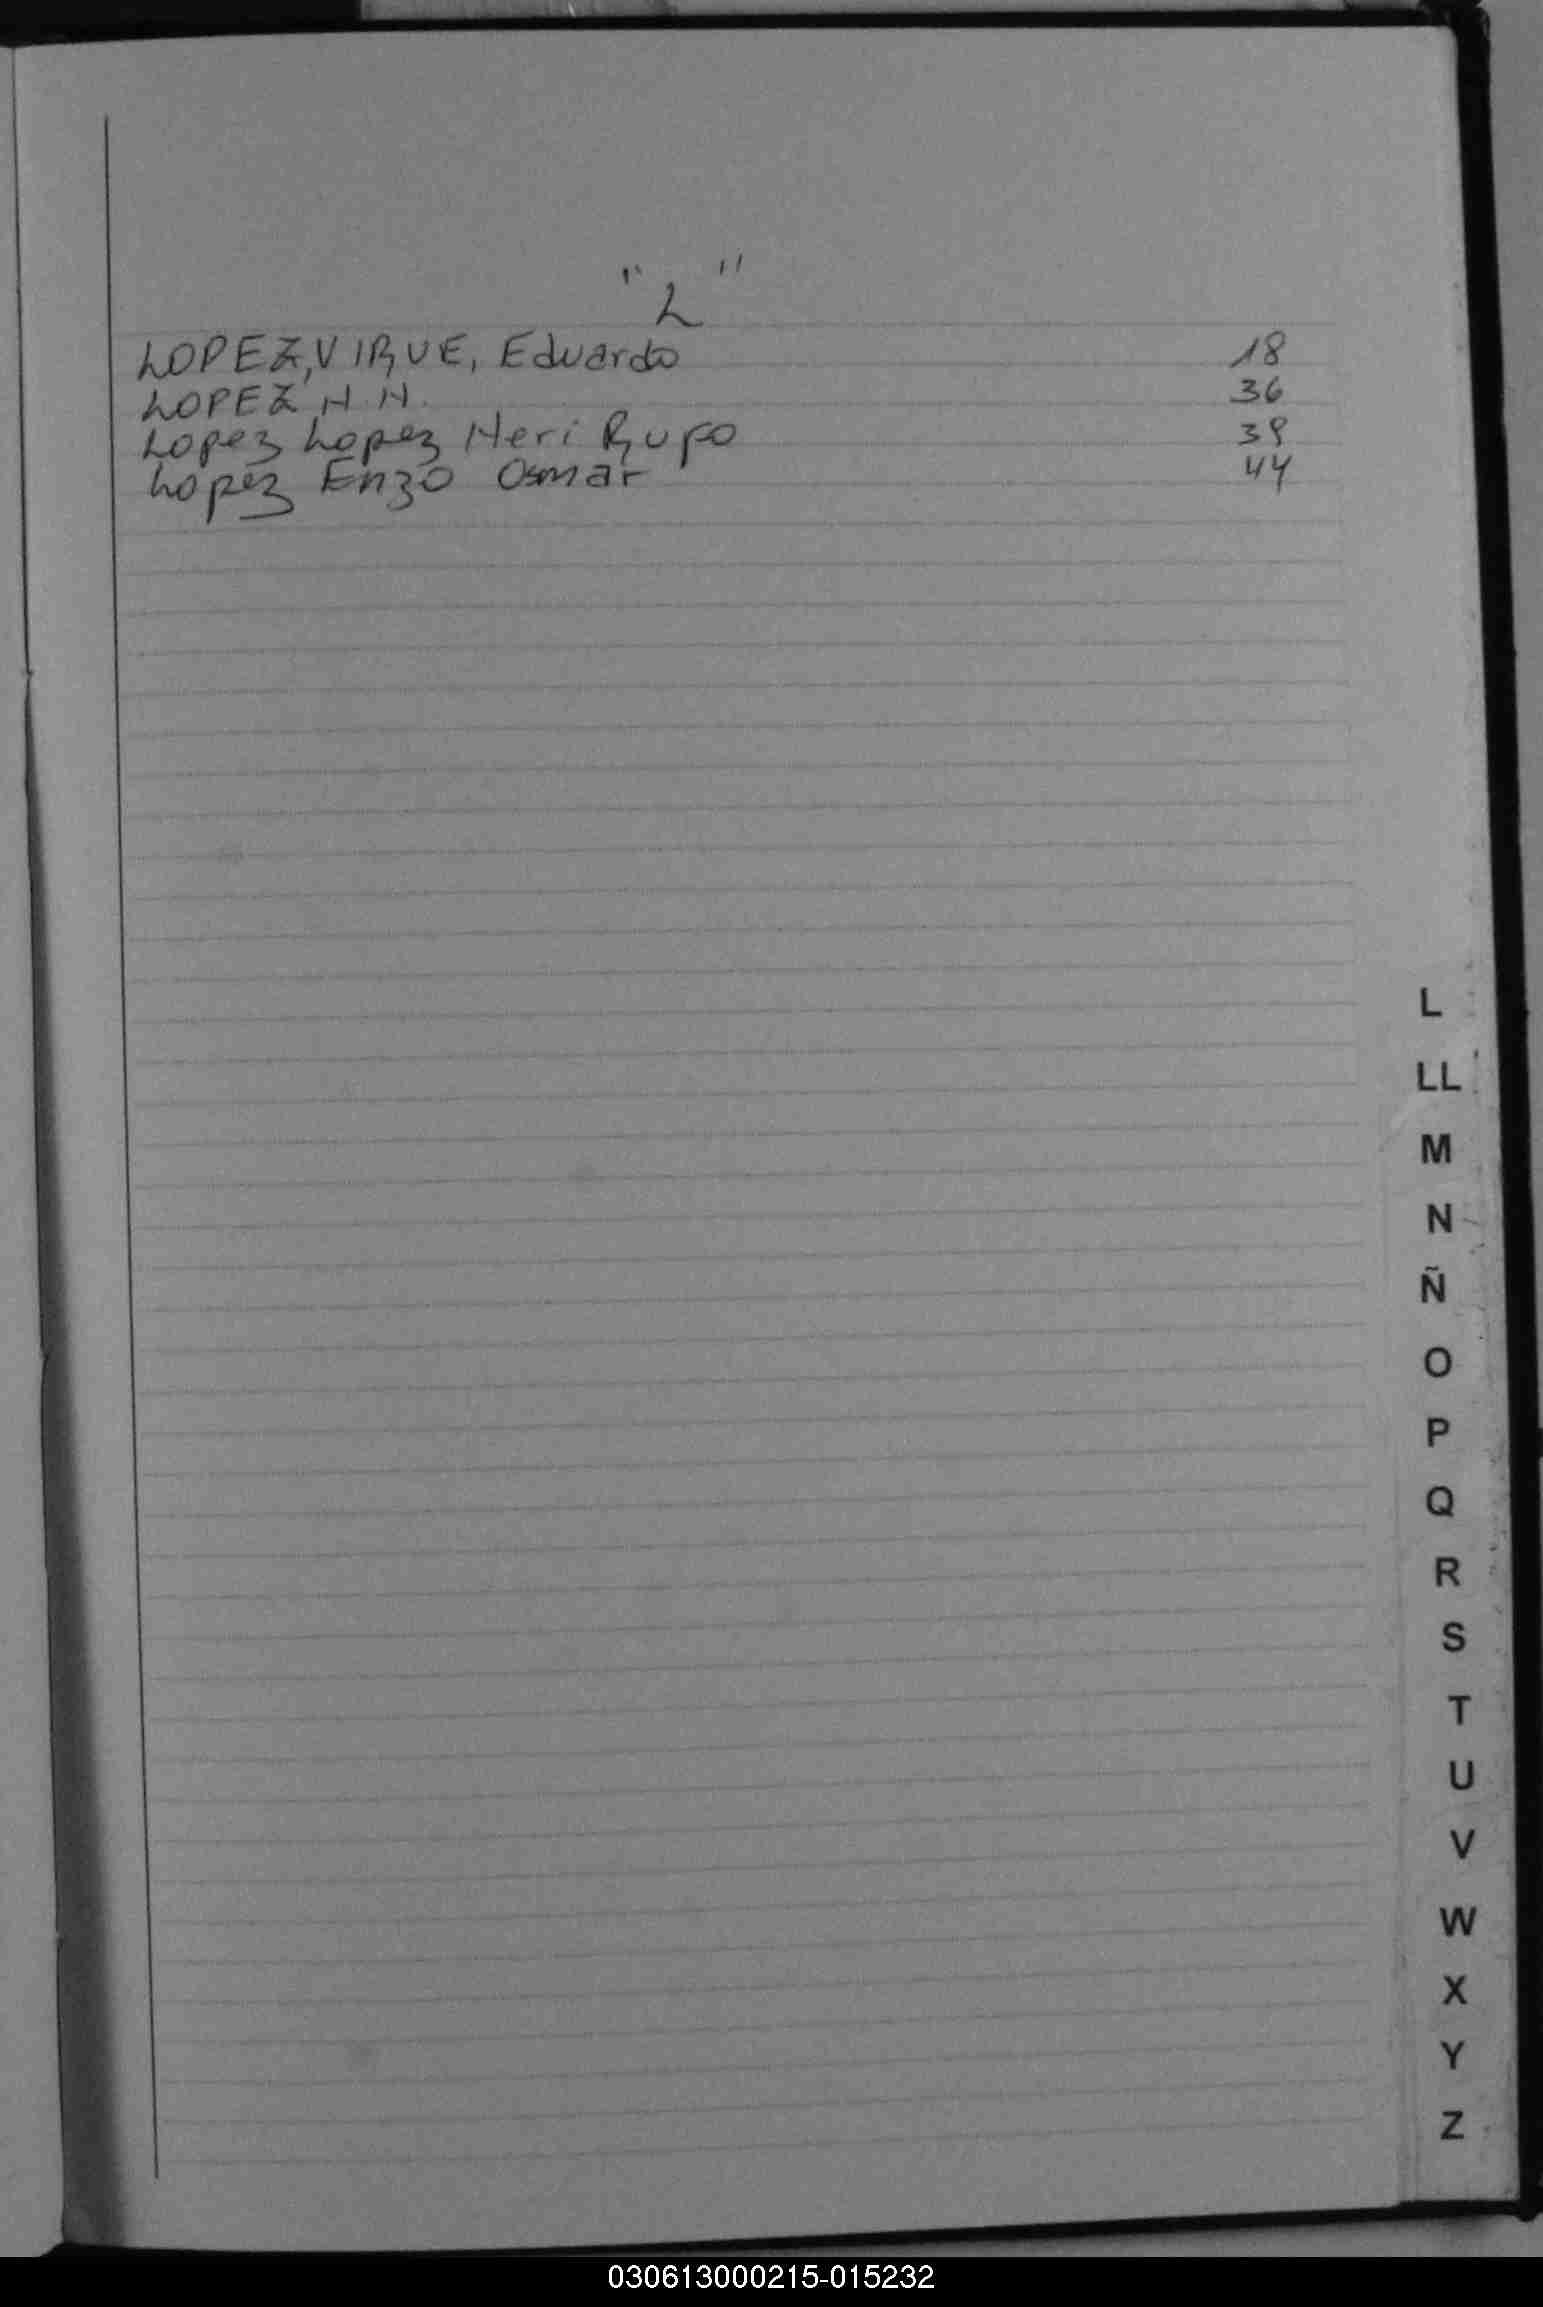 "L"
LOPEZ, VIRUE, Eduardo 18
LOPEZ N.N. 36
Lopez Lopez Neri Rufo 39
Lopez Enzo Osmar 44
L
LL
M
N
Ñ
O
P
Q
R
S
T
U
V
W
X
Y
Z
030613000215-015232